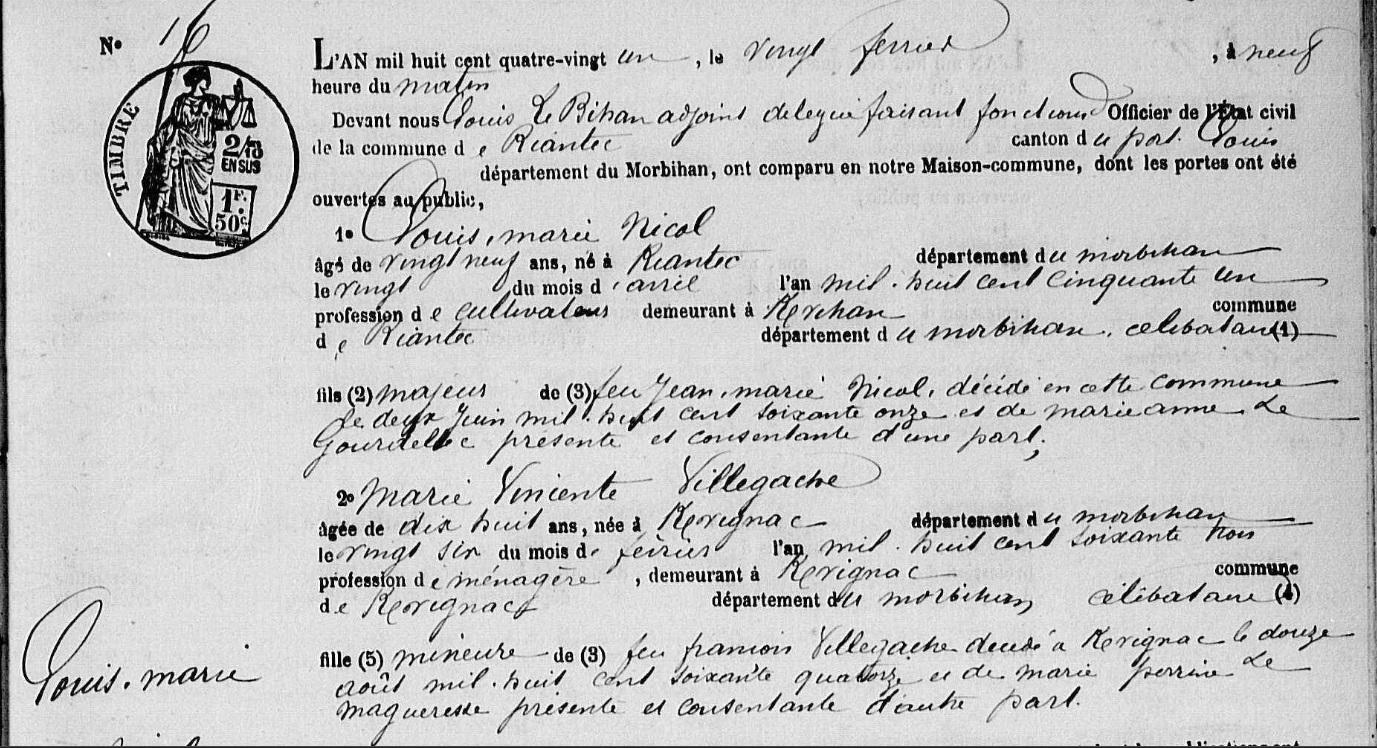 N° 16
L'AN mil huit cent quatre-vingt un, le vingt ferrier, à neuf
heure du matin
Devant nous Louis Le Bihan adjoint delegué faisant fonctions d'Officier de l'État civil
de la commune de Riantec canton du port. Louis
département du Morbihan, ont comparu en notre Maison-commune, dont les portes ont été
ouvertes au public,
TIMBRE
2/10 EN SUS
1F. 50c.
1° Louis, marie Nicol
âgé de vingt neuf ans, né à Riantec département du morbihan
le vingt du mois d'avril l'an mil. huit cent cinquante un
profession de cultivateur demeurant à Kerihan commune
de Riantec département du morbihan. célibataire (1)
fils (2) majeur de (3) feu Jean, marie Nicol, décédé en cette commune
le deux Juin mil. huit cent soixante onze et de marie anne Le
Gourrellec présente et consentante d'une part;
2° Marie Vincente Villegache
âgée de dix huit ans, née à Kervignac département du morbihan
le vingt six du mois de février l'an mil. huit cent soixante trois
profession de ménagère, demeurant à Kervignac commune
de Kervignac département du morbihan célibataire (4)
fille (5) mineure de (3) feu francois Villegache decedé à Kervignac le douze
août mil. huit cent soixante quatorze et de marie perrine Le
magueresse présente et consentante d'autre part.
Louis. marie